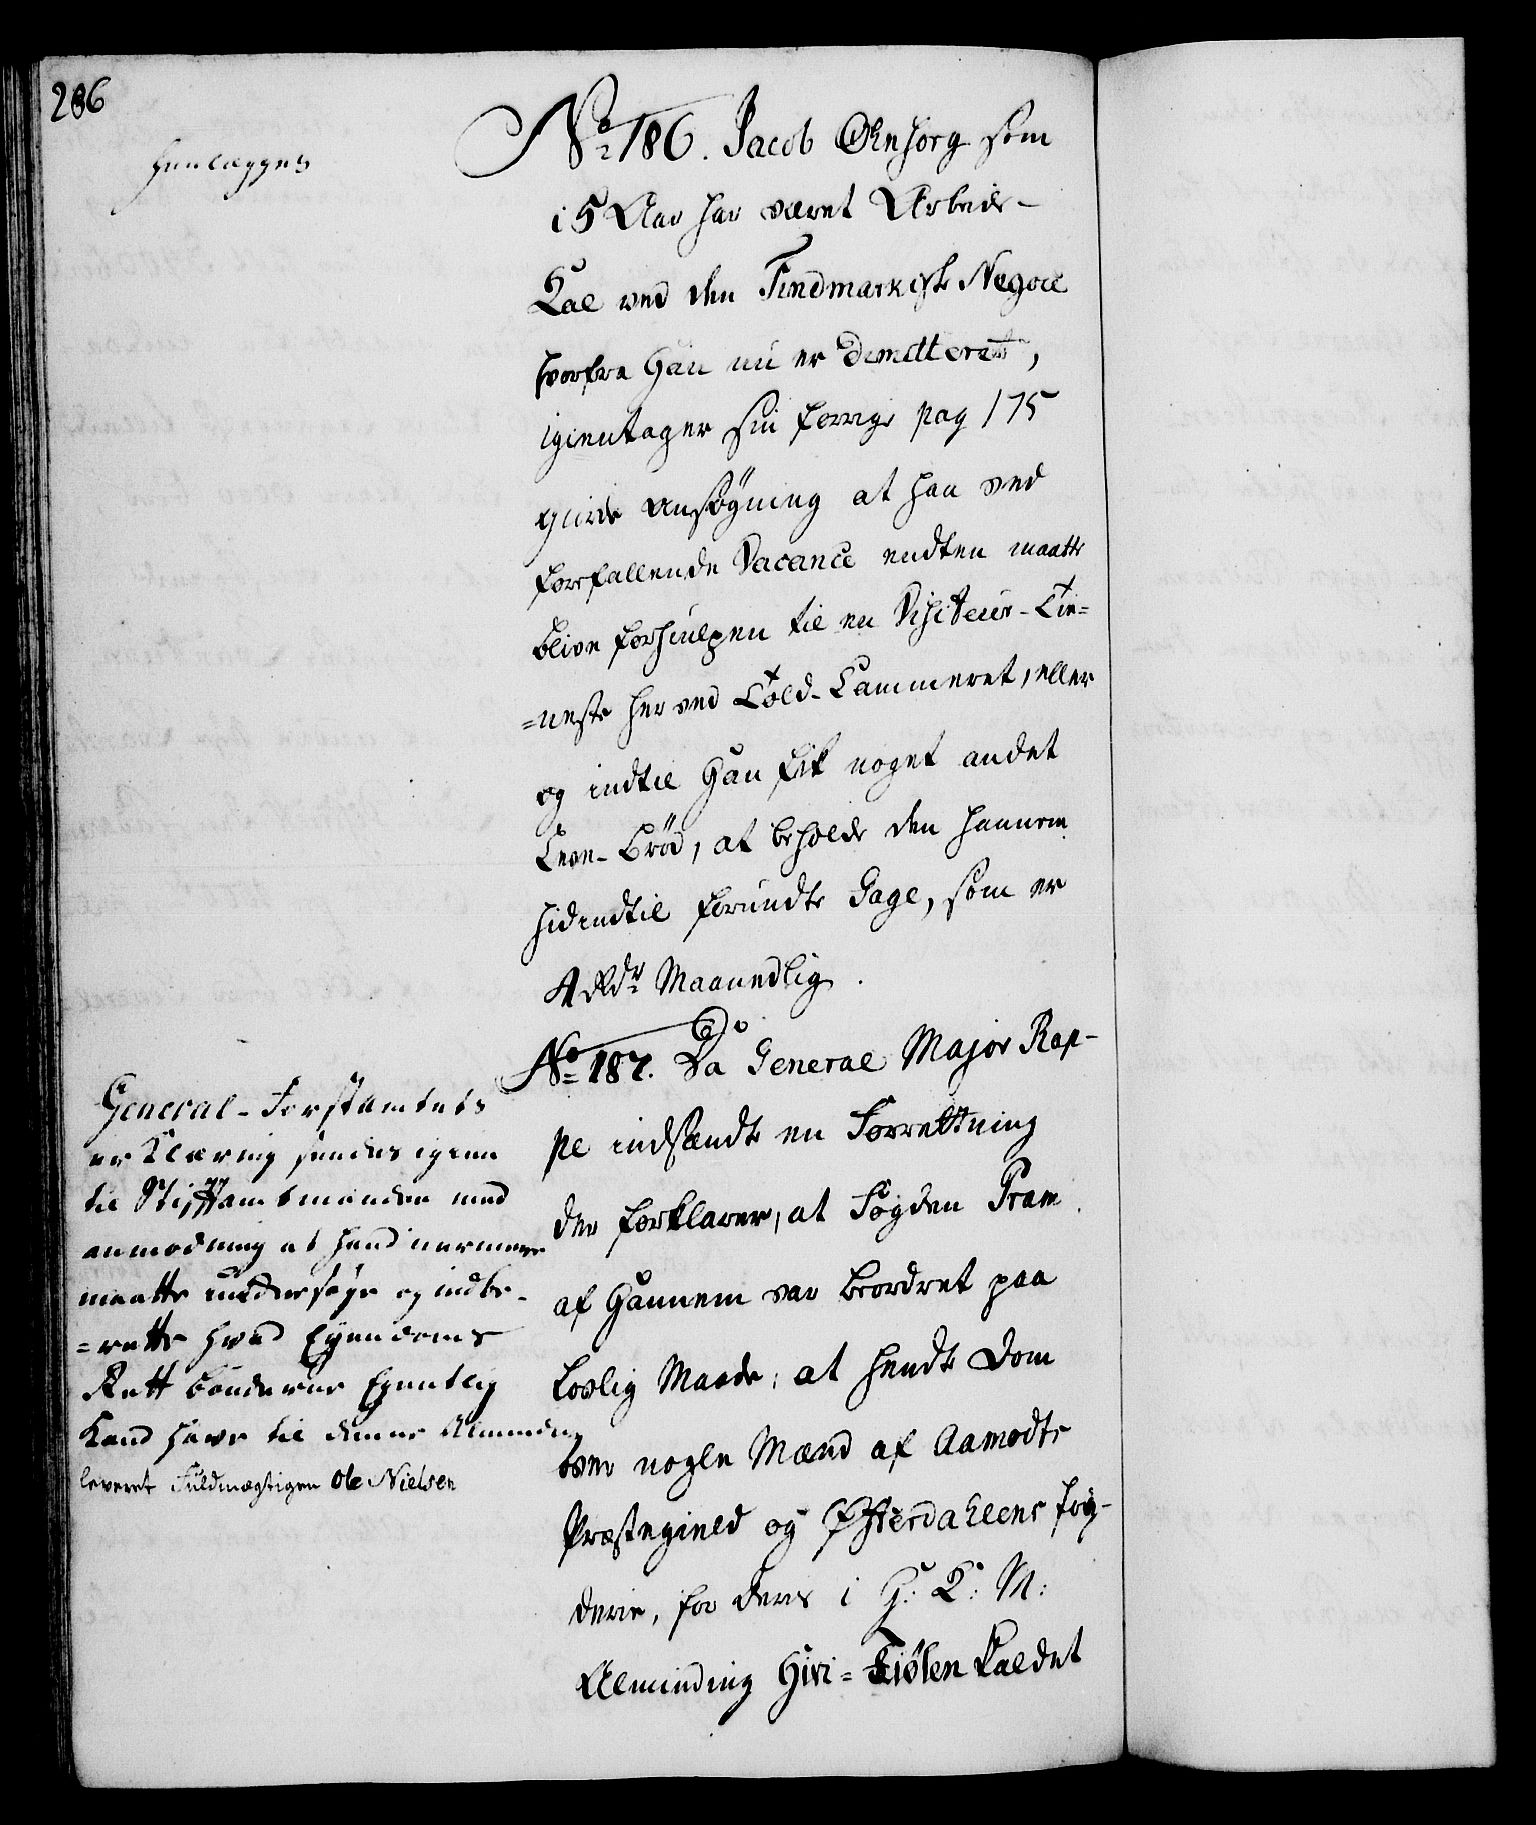 286
henlægges
No 186. Jacob Ørnsborg som
i 5 Aar har været Arbeids-
Karl ved den Findmarkiske Negoce
hvorfra Han nu er Dimitteret,
igientager sin forrige pag 175
giorde Ansøgning at han ved
forefallende Vacance endten maatte
blive forhiulpen til en Visiteur-Tie-
=neste her ved Told-Cammeret, eller
og indtil Han fik noget andet
Leve-Brød, at beholde den hannem
hidindtil forundte Gage, som er
4 Rdr Maanedlig.
General-Forstamtets
erklæring sendes igien
til Stiftamtmanden med
anmodning at hand nermere
maatte undersøge og indbe-
=rette hvad Eyendoms
Rett bønderne Egentlig
Kand have til denne Alminding
leveret Fuldmægtigen Ole Nielsen
No 187. Da General Major Rap-
pe indsendte en Forrettning
der forklarer, at Fogden Pram
af Hannem var beordret paa
lovlig Maade, at hendte Dom
over nogle Mænd af Aamodts
Præstegield og Østerdahlens fog-
derie, for deres i H: K: M:
Alminding Hivi-Fiølen kaldet